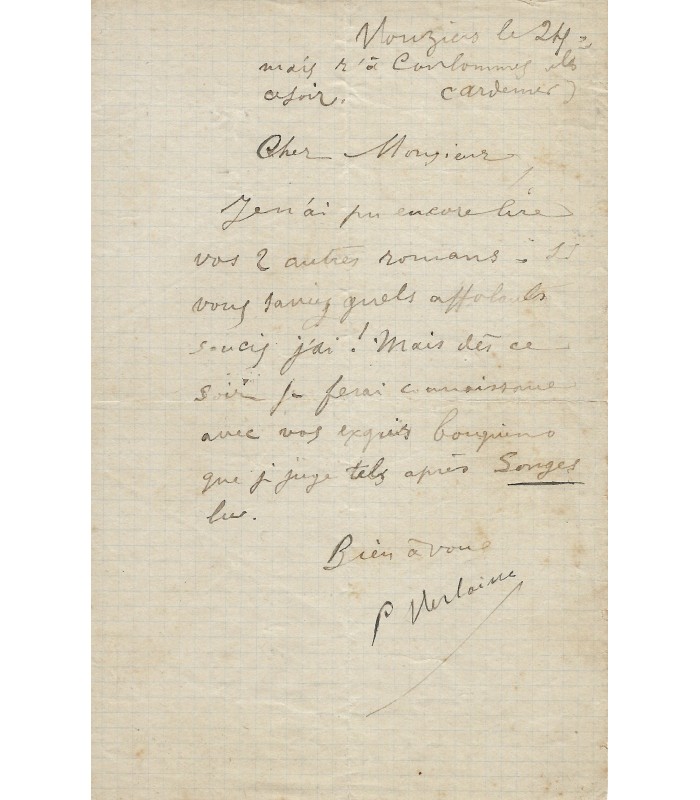 Vouziers le 24
mais r. à Coulommes
ce soir. Ardennes)
Cher Monsieur
Je n'ai pu encore lire
vos 2 autres romans. Si
vous saviez quels affolants
soucis j'ai! Mais dès ce
soir je ferai connaissance
avec vos exquis bouquins
que je juge tels après Songes
lu.
Bien à vous
P Verlaine